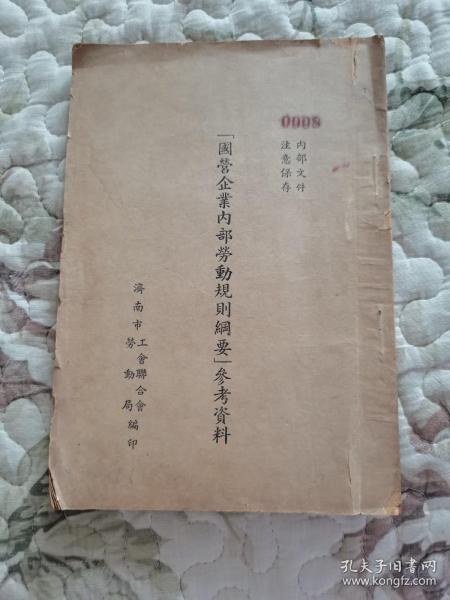 0008
内部文件
注意保存
「國營企業內部勞動規則綱要」參考資料
濟南市工會聯合會勞動局編印
孔夫子旧书网
www.kongfz.com